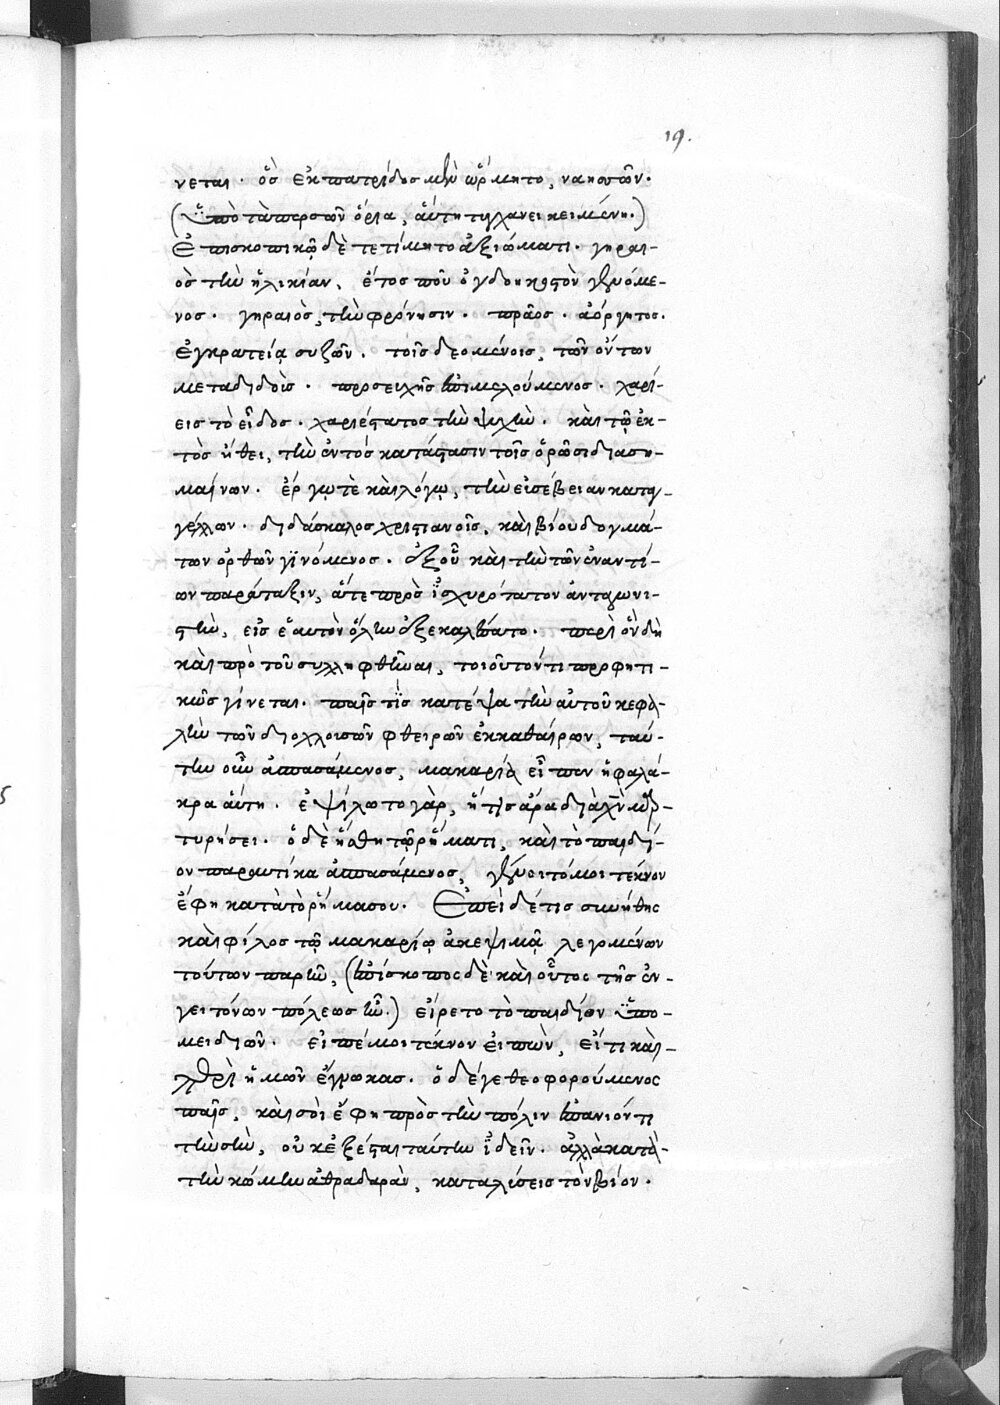 19.
νεται. ὃς ἐκ πατρίδος μὲν ὥρμητο, ναησσῶν.
(Ὑπὸ τὰ περσῶν ὅρια, αὕτη τυγχάνει κειμένη.)
Ἐπισκοπικῷ δὲ τετίμητο ἀξιώματι. γηραι-
ὸς τὴν ἡλικίαν, ἔτος που ὀγδοηκοστὸν γενόμε-
νος. γηραιὸς, τὴν φρόνησιν. πρᾶος. ἀόργητος.
Ἐγκρατείᾳ συζῶν. τοῖς δεομένοις, τῶν ὄντων
μεταδιδοὺς. προσευχῆς ἐπιμελούμενος. χαρί-
εις τὸ εἶδος. χαριέστατος τὴν ψυχὴν. καὶ τῷ ἐκ-
τὸς ἤθει, τὴν ἐντός κατάστασιν τοῖς ὁρῶσι διαση-
μαίνων. ἔργῳ τὲ καὶ λόγῳ, τὴν εὐσέβειαν καταγ-
γέλλων. διδάσκαλος χριστιανοῖς, καὶ βίου δογμά-
των ὀρθῶν γϊνόμενος. ἐξ οὗ καὶ τὴν τῶν ἐναντί-
ων παράταξιν, ἅτε πρὸς ἰσχυρότατον ἀνταγωνι-
στὴν, εἰς ἑαυτὸν ὅλην ἐξεκαλέσατο. περὶ ὃν δὴ
καὶ πρὸ τοῦ συλληφθῆναι, τοιοῦτόν τι προφητι-
κῶς γίνεται. παῖς τίς κατέψα τὴν αὐτοῦ κεφα-
λὴν τῶν διολλουσῶν φθειρῶν ἐκκαθαίρων, ταύ-
την οὖν ἀσπασάμενος, μακαρία εἶπεν ἡ φαλά-
κρα αὕτη. ἐψίλωτο γὰρ, ἥτις ἄρα διὰ χν μαρ-
τυρήσει. ὁ δὲ ἥσθη τῷ ῥήματι, καὶ τὸ παιδί-
ον παραυτίκα ἀσπασάμενος, γένοιτό μοι τέκνον
ἔφη κατὰ τὸ ῥῆμα σου. Ἐπεὶ δέ τις συνήθης
καὶ φίλος τῷ μακαρίῳ ἀκεψιμᾷ λεγομένων
τούτων παρῆν, (ἐπίσκοπος δὲ καὶ οὗτος τῆς ἐν-
γειτόνων πόλεως ἦν.) εἴρετο τὸ παιδίον ὑπο-
μειδιῶν. εἰπέ μοι τέκνον εἰπὼν, εἴ τι καὶ
περὶ ἡμῶν ἔγνωκας. ὁ δέ γε θεοφορούμενος
παῖς, καὶ σοὶ ἔφη πρὸς τὴν πόλιν ἐπανιόντι
τὴν σὴν, οὐκ ἐξέσται ταύτην ἰδεῖν. ἀλλὰ κατὰ
τὴν κώμην ἀθραδαρὰν, καταλύσεις τὸν βίον.